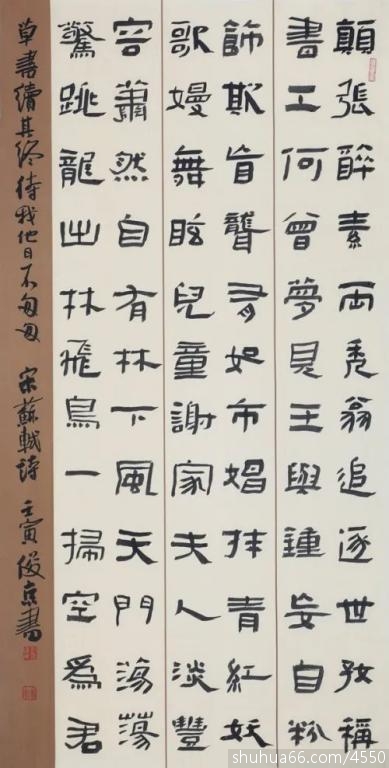 顛張醉素兩禿翁追逐世好稱
書工何曾夢見王與鍾妄自粉
飾欺盲聾有如市娼抹青紅妖
歌嫚舞眩兒童謝家夫人淡豐
容蕭然自有林下風天門蕩蕩
驚跳龍出林飛鳥一掃空為君
草書續其終待我他日不匆匆 宋蘇軾詩 壬寅俊京書
shuhua66.com/4550